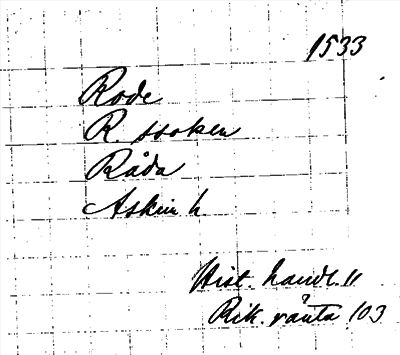 1533
Rode
R. ssoken
Råda
Askim h.
Hist. handl. 11
Rik. ränta 103